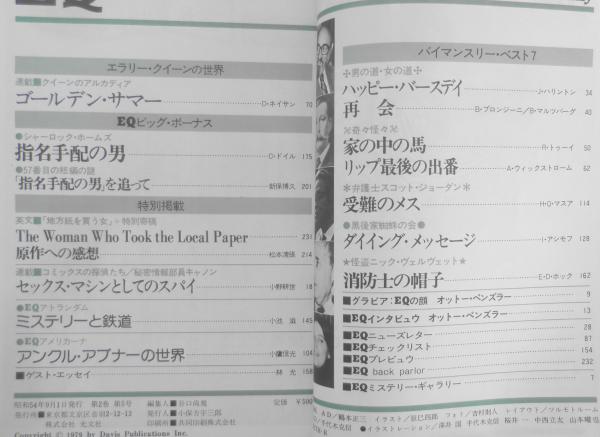 EQ
エラリー・クイーンの世界
連載■クイーンのアルカディア
ゴールデン・サマー D・ネイサン 70
EQビッグ・ボーナス
●シャーロック・ホームズ
指名手配の男 D・ドイル 175
●57番目の短編の謎
「指名手配の男」を追って 新保博久 201
特別掲載
英文■「地方紙を買う女」+特別寄稿
The Woman Who Took the Local Paper 231
原作への感想 松本清張 214
連載■コミックスの探偵たち/秘密情報部員キャノン
セックス・マシンとしてのスパイ 小野耕世 18
●EQアトランダム
ミステリーと鉄道 小池滋 145
●EQアメリカーナ
アンクル・アブナーの世界 小鷹信光 104
■ゲスト・エッセイ 林光 158
昭和54年9月1日発行 第2巻 第5号
発行所■東京都文京区音羽2-12-13
株式会社 光文社
編集人■谷口尚規
発行人■小保方宇三郎
印刷所■共同印刷株式会社
定価 ¥500
Copyright © 1979 by Davis Publications Inc.
バイマンスリー・ベスト7
✢男の道・女の道✢
ハッピー・バースデイ J・ハリントン 34
再会 B・プロンジーニ/B・マルツバーグ 40
※奇々怪々※
家の中の馬 R・トゥーイ 50
リップ最後の出番 A・ヴィックストローム 62
＊弁護士スコット・ジョーダン＊
受難のメス H・Q・マスア 114
●黒後家蜘蛛の会●
ダイイング・メッセージ I・アシモフ 128
★怪盗ニック・ヴェルヴェット★
消防士の帽子 E・D・ホック 162
■グラビア:EQの顔 オットー・ペンズラー 9
■EQインタビュウ オットー・ペンズラー 13
■EQニューズレター 28
■EQチェックリスト 87
■EQプレビュウ 154
■EQ back parlor 232
■EQミステリー・ギャラリー 7
AD/鶴本正三 イラスト/辰巳四郎 フォト/吉村則人 レイアウト/ツルモトルーム
千代木克信 ●イラストレーション/深井国 千代木克信 桜井一 中西立太 山本曜也